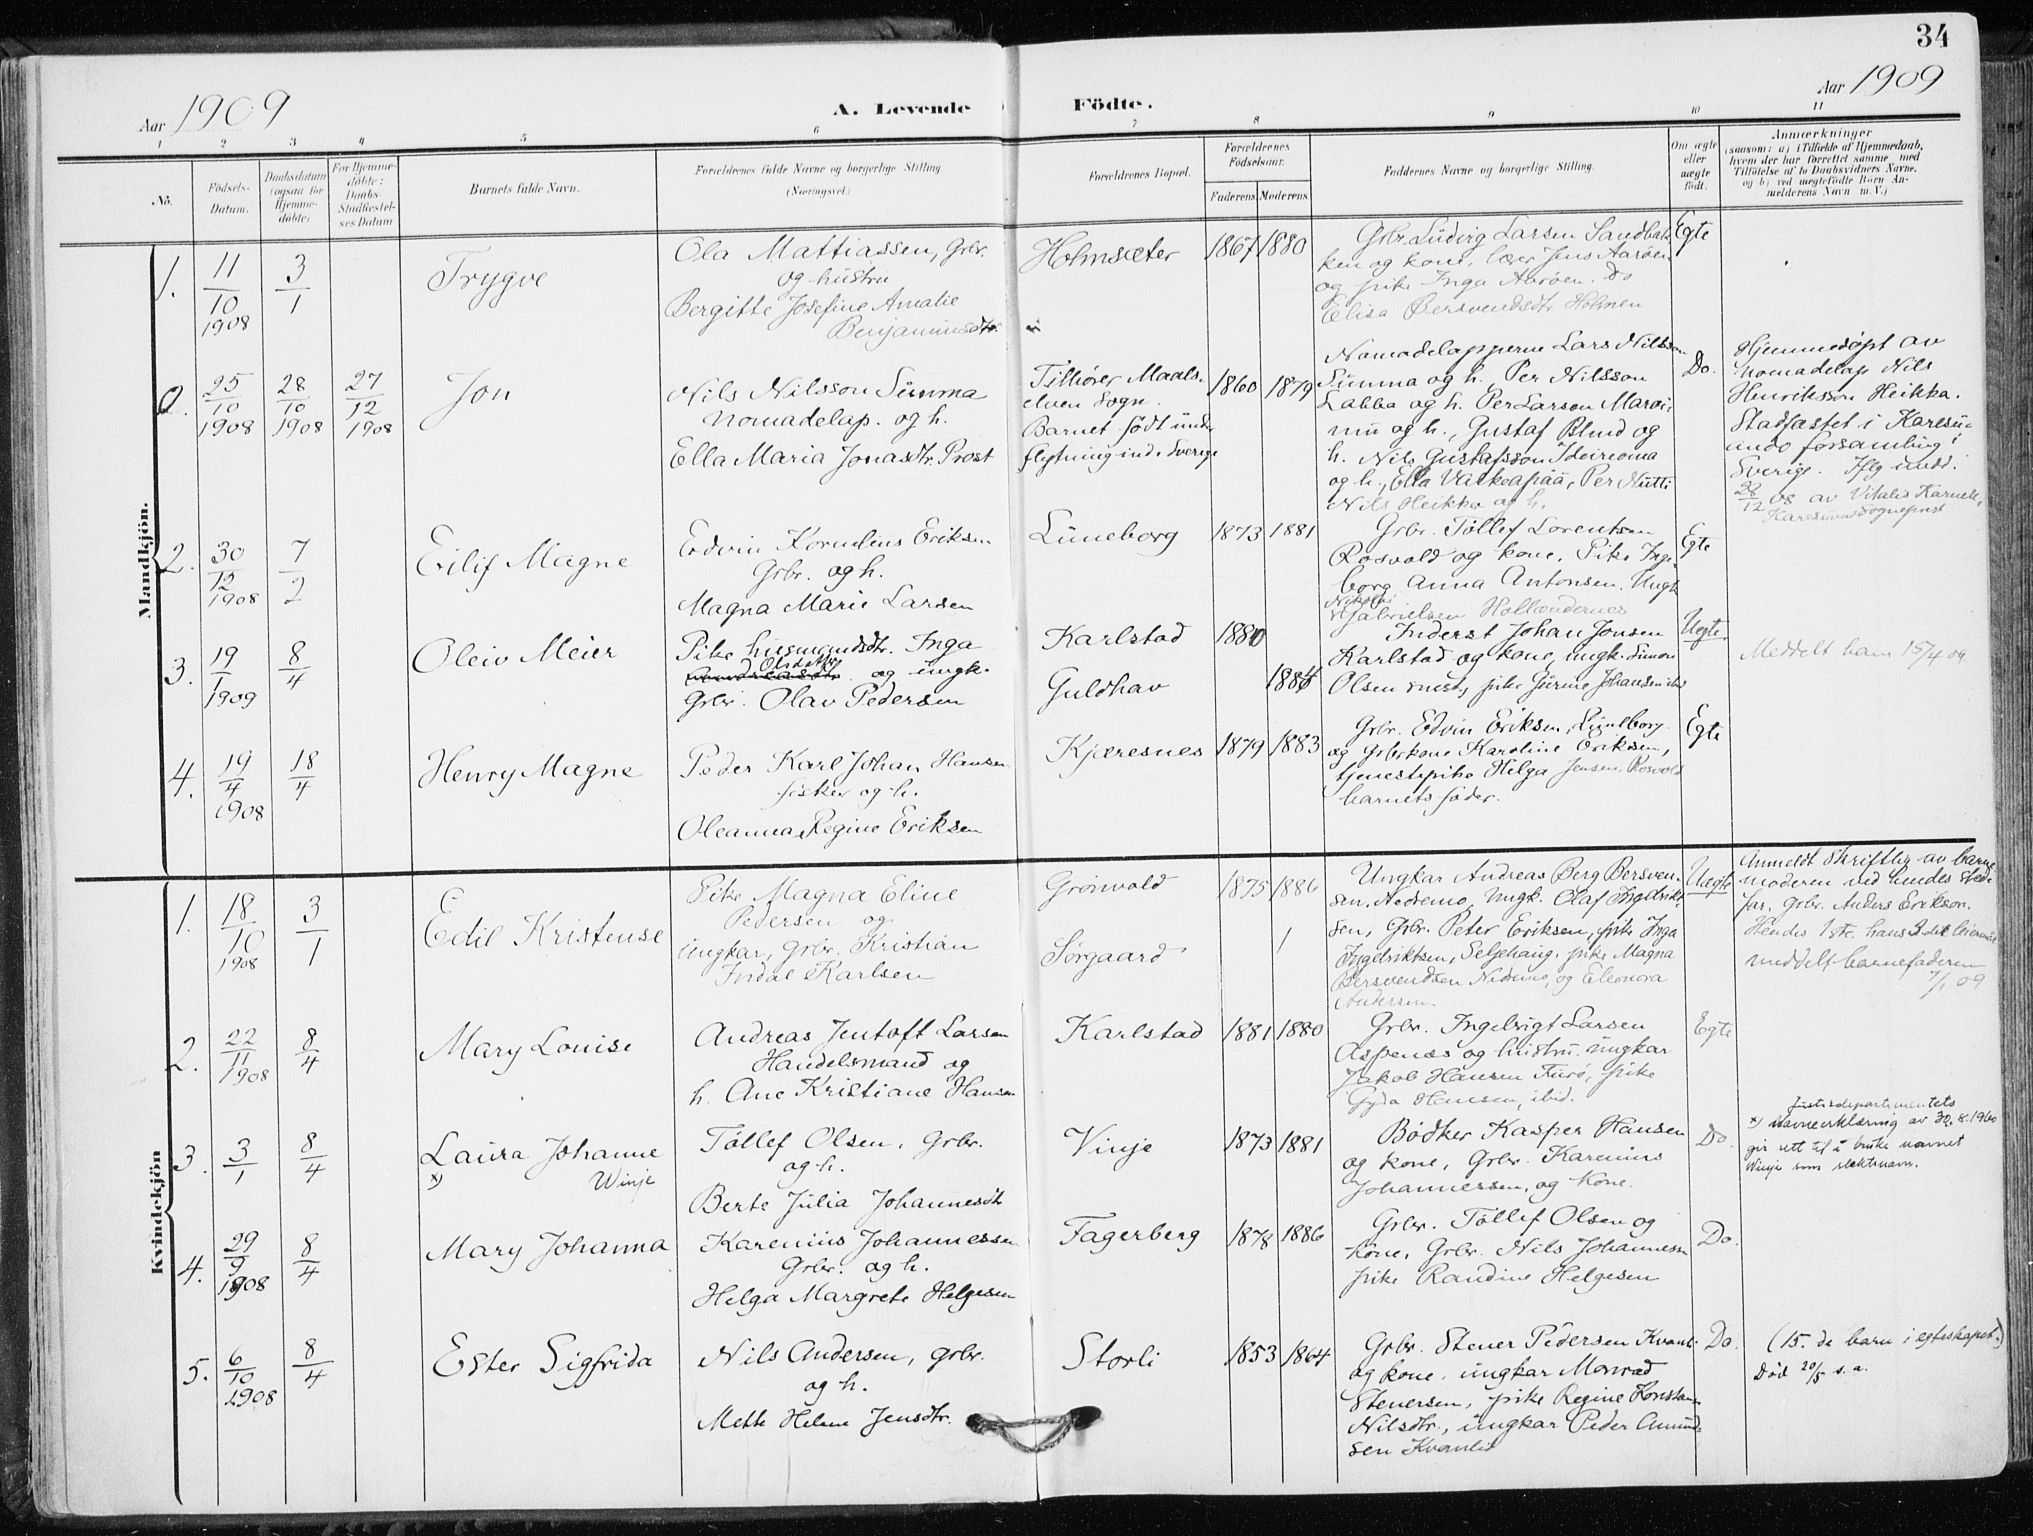 34
Aar 1909
A. Levende Födte.
Aar 1909
1 2 3 4 5 6 7 8 9 10 11
No.
Födsels-
Datum.
Daabsdatum
(ogsaa for
Hjemme-
döbte)
For Hjemme-
döbte:
Daabs-
Stadfæstel-
ses Datum
Barnets fulde Navn.
Forældrenes fulde Navne og borgerlige Stilling.
(Næringsvei.)
Forældrenes Bopæl.
Forældrenes
Födselsaar.
Faderens Moderens
Faddernes Navne og borgerlige Stilling.
Om ægte
eller
uægte
födt.
Anmærkninger
(saasom: a) i Tilfælde af Hjemmedaab,
hvem der har forrettet samme med
Tilföielse af to Daabsvidners Navne.
og b) ved uægtefödte Börn An-
melderens Navn m. V.)
Mandkjön.
1.
11/10 1908
3/1
Trygve
Ola Mattiassen, Grbr.
og hustru
Bergitte Josefine Amalie
Benjaminsdtr.
Holmsæter
1867 1880
Grbr. Ludvig Larsen Sandbak-
ken og kone, lærer Jens Aarøen
og pike Inga Aarøen. Do
Elisa Bersvendsdtr. Holmen
Egte
0.
25/10 1908
28/10 1908
27/12 1908
Jon
Nils Nilsson Summa
nomadelap. og h.
Ella Maria Jonasdtr. Prost
Tilhører Maals-
elven Sogn.
Barnet født under
flytning ind i Sverige
1860 1879
Nomadelapperne Lars Nilsson
Summa og h. Per Nilsson
Labba og h. Per Larson Maroi-
mu og h., Gustaf Blind og
h. Nils Gustafsson
og h., Ella Valkeapää, Per Nutti
Nils Heikka og h.
Do.
Hjemmedøpt av
nomadelap Nils
Henriksson Heikka.
Stadfæstet i Karesu-
ando forsamling i
Sverige. Iflg medd.
28/12 08 av Vitalis Karnell,
Karesuando sogneprest
2.
30/12 1908
7/2
Eilif Magne
Edvin Kornelius Eriksen
Grbr. og h.
Magna Marie Larsen
Luneborg
1873 1881
Grbr. Tollef Lorentsen
Rosvold og kone. Pike Inge-
borg Anna Antonsen. Ungk
Nikolai
Gabrielsen Hollændernes
Egte
3.
19/1 1909
8/4
Oleiv Meier
Pike husmandsdtr. Inga
Olsdatter og ungk.
Grbr. Olav Pedersen
Karlstad
Guldhav
1880
1884
Inderst Johan Jonsen
Karlstad og kone, ungk. Simon
Olsen, pike Johansen ibid
Uegte
Meddelt ham 15/4 09
4.
19/4 1908
18/4
Henry Magne
Peder Karl Johan Hansen
fisker og h.
Oleanna Regine Eriksen
Kjæresnes
1879 1883
Grbr. Edvin Eriksen, Luneborg
og Grbr.kone Karoline Eriksen,
tjenestepike Helga Jensen, Rosvold
barnets fader.
Egte
Kvindekjön
1.
18/10 1908
3/1
Edil Kristense
Pike Magna Eline
Pedersen og
ungkar, grbr. Kristian
Indal Karlsen
Grønvold
Sørgaard
1875 1886
Ungkar Andreas Berg Bersven-
sen, Nedremo, ungk. Olaf Ingebrikt-
sen, Grbr. Peter Eriksen, pike Inga
Ingebriktsen, Seljehaug. pike Magna
Bersvendsen Nedremo, og Eleonora
Andersen.
Uegte
Anmeldt skriftlig av barne-
moderen ved hendes sted-
far, Grbr. Anders Erikson.
Hendes 1ste. hans 3die leiermaal
meddelt barnefaderen
7/1 09
2.
22/11 1908
8/4
Mary Louise
Andreas Jentoft Larsen
Handelsmand og
h. Ane Kristiane Hansen
Karlstad
1881 1880
Grbr. Ingebrigt Larsen
Aspenes og hustru. ungkar
Jakob Hansen Furø, pike
Gyda Hansen, ibid.
Egte
3.
3/1
8/4
Laura Johanne
x) Winje
Tollef Olsen, Grbr.
og h.
Berte Julia Johannesdtr
Vinje
1873 1881
Bødker Kasper Hansen
og kone, Grbr. Karenius
Johannessen, og kone.
Do.
Justisdepartementets
x) navneerklæring av 30.8.1960
gir rett til å bruke navnet
Winje som slektsnavn.
4.
29/9 1908
8/4
Mary Johanna
Karenius Johannessen
Grbr. og h.
Helga Margrete Helgesen
Fagerberg
1878 1886
Grbr. Tollef Olsen og
kone, Grbr. Nils Johannessen
pike Randine Helgesen
Do.
5.
6/10 1908
8/4
Ester Sigfrida
Nils Andersen, grbr.
og h.
Mette Helene Jensdtr.
Storli
1853 1864
Grbr. Stener Pedersen Kvanli
og kone, ungkar Monrad
Stenersen, pike Regine Konstan
Nilsdtr., ungkar Peder Amund-
sen Kvanlid
Do.
(15. de barn i egteskapet.)
Død 20/5 s. a.